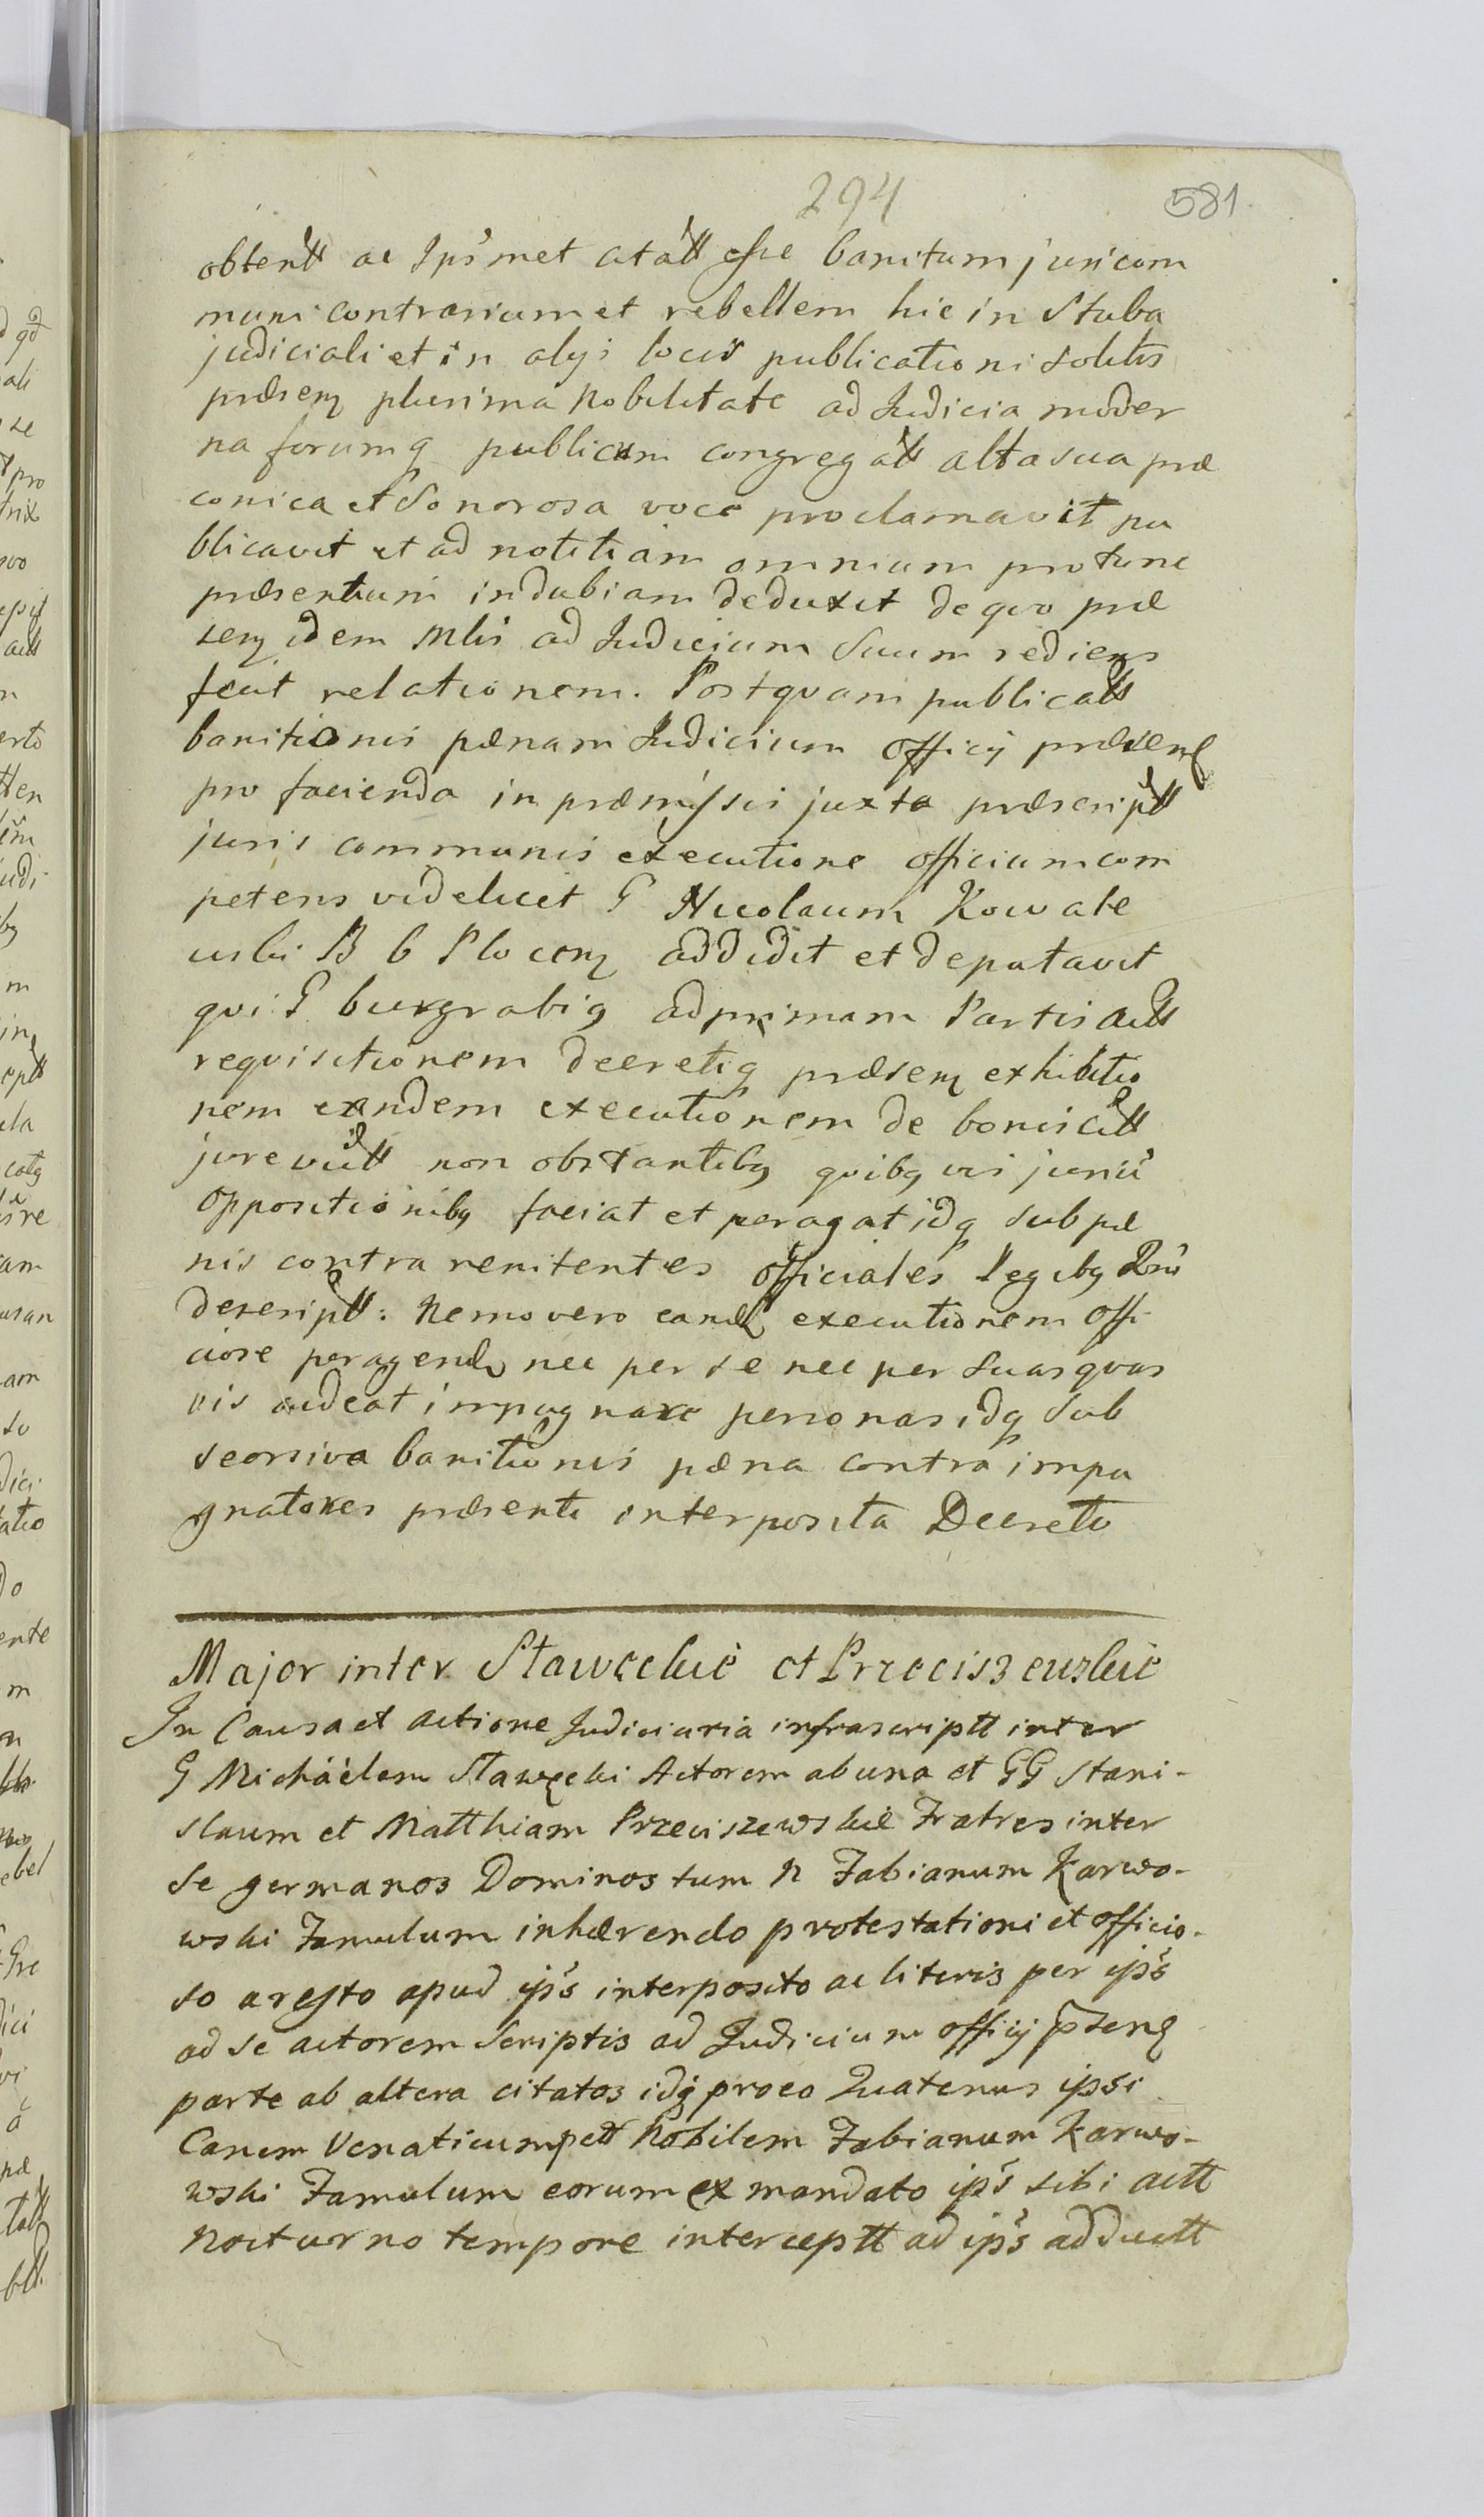 294
581
obtentt ac Ipsmet citatt esse banitum juri com
muni contrarium et rebellem hic in Stuba
judiciali et in alys locis publicationi solitis
præsenz plurima Nobilitate ad Judicia moder
na forumq publicum congregatt alta sua præ
conica et Sonorosa voce proclamavit pu
blicavit et ad notitiam omnium pro tunc
præsentium indubiam deduxit de quo præ
senz idem Mlis ad Judicium Suum rediens
fecit relationem. Postquam publicatt
banitionis pænam Judicium officij præsenz
pro facienda in præmissis juxta præscriptt
juris communis executione officium com
petens videlicet G Nicolaum Kowale
wski B C Plocenz addidit et deputavit
qui G burgrabig ad primam Partis actt
requisitionem decretiq præsenz exhibitio
nem eandem executionem de bonis citt
jure victt non obstantibg quibg vis juriu
oppositionibg faciat et peragat idq sub pæ
nis contra renitentes officiales legibg Rni
descriptt: Nemo vero eand executionem offi
ciose peragend nec per se nec per suas quas
vis audeat impugnare personas idq sub
seorsiva banitionis pæna contra impu
gnatores præsenti interposita Decreto
Major inter Stawęckie et Przeciszewskie
In Causa et actione Judiciaria infrascriptt inter
G Michäelem Stawęcki Actorem ab una et GG Stani-
slaum et Matthiam Przeciszewskie Fratres inter
se germanos Dominos tum N Fabianum Karwo-
wski Famulum inhærendo protestationi et officio-
so aresto apud ips interposito ac literis per ips
ad se actorem Scriptis ad Judicium officij pzenz
parte ab altera citatos idq pro eo Quatenus ipsi
Canem Venaticum pett Nobilem Fabianum Karwo-
wski Famulum eorum ex mandato ips sibi actt
Nocturno tempore interceptt ad ips adductt